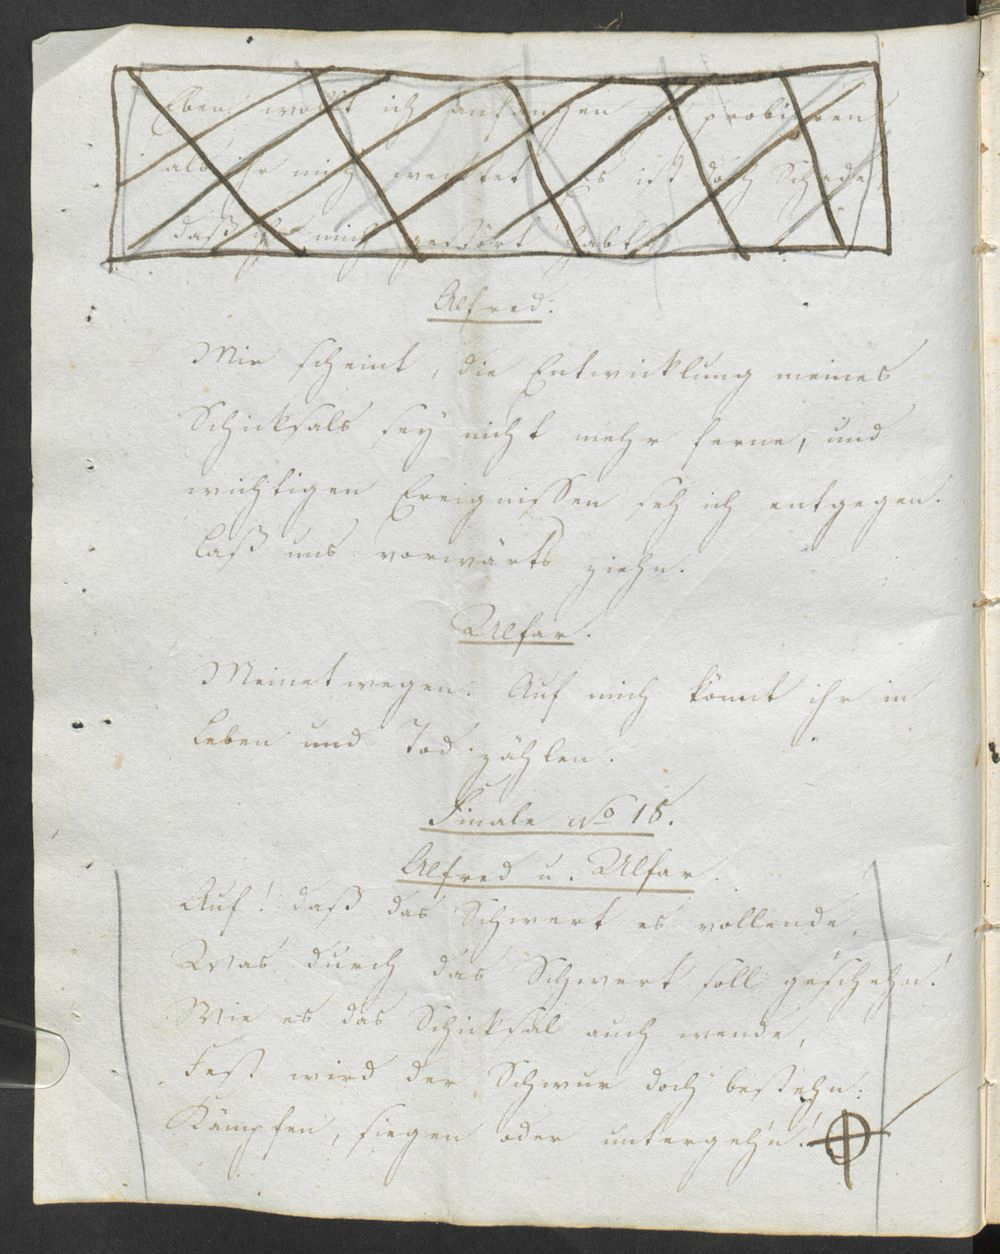 Eben wollt ich anfangen zu probieren
als ihr mich wecktet. Es ist doch Schade,
daß ihr mich gestört habt.
Alfred:
Mir scheint, die Entwicklung meines
Schicksals sey nicht mehr ferne, und
wichtigen Ereignissen seh ich entgegen.
Laß uns vorwärts ziehn.
Ulfar.
Meinetwegen. Auf mich könnt ihr in
Leben und Tod zählen.
Finale No 18.
Alfred u. Ulfar.
Auf! daß das Schwert es vollende,
Was durch das Schwert soll geschehn!
Wie es das Schicksal auch wende,
Fest wird der Schwur doch bestehn:
Kämpfen, siegen oder untergehn!